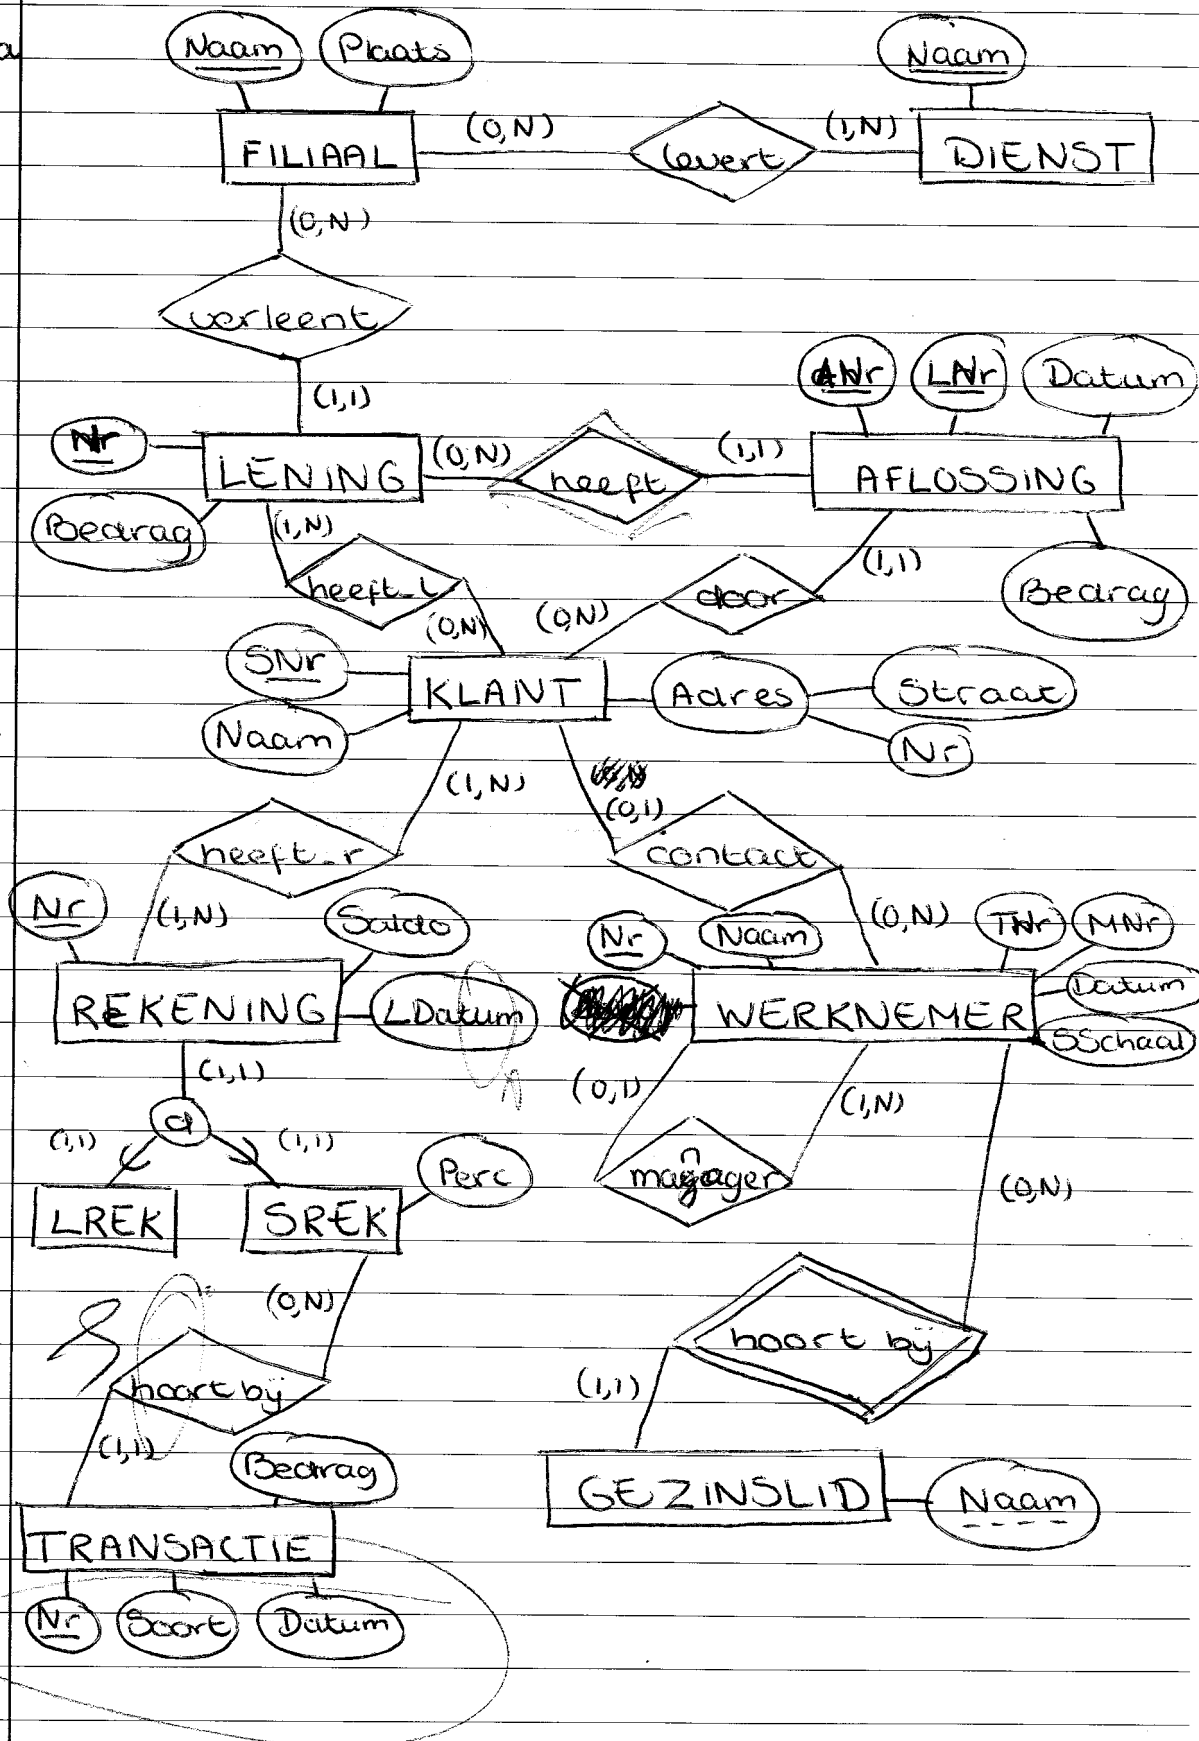 a
Naam Plaats Naam
FILIAAL (0,N) levert (1,N) DIENST
(0,N)
verleent
(1,1)
ANr LNr Datum
Nr LENING (0,N) heeft (1,1) AFLOSSING
Bedrag (1,N) (1,1) Bedrag
heeft_l (0,N) (0,N) door
SNr KLANT Adres Straat
Naam Nr
(1,N) (0,1)
heeft_r contact
Nr (1,N) Saldo Nr Naam (0,N) TNr MNr
REKENING LDatum WERKNEMER Datum
SSchaal
(1,1) (0,1) (1,N)
(1,1) d (1,1)
Perc manager (0,N)
LREK SREK
(0,N)
hoort bij hoort bij
(1,1) (1,1)
Bedrag
GEZINSLID Naam
TRANSACTIE
Nr Soort Datum